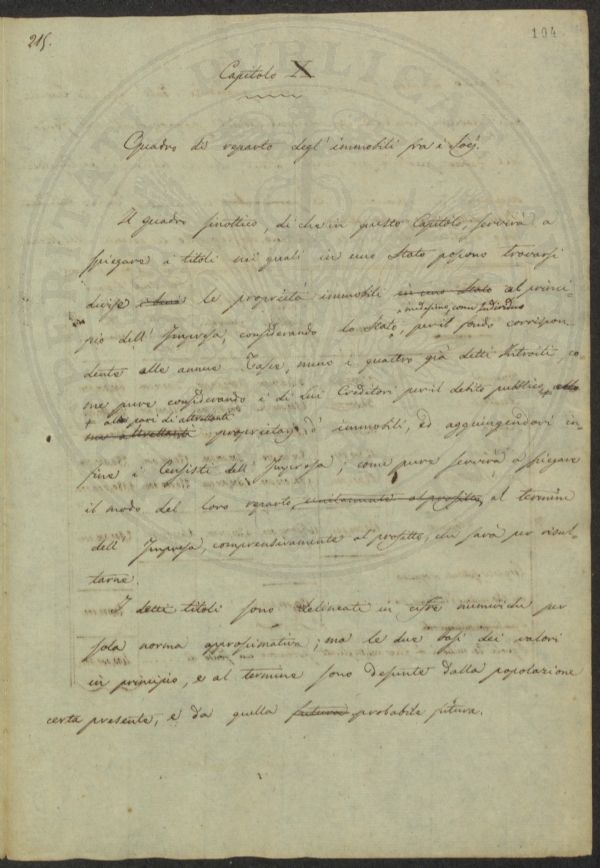 215.
194
Capitolo X
Quadro di reparto degl' immobili fra i Socj.
Il quadro sinottico, di che in questo Capitolo, servirà a
spiegare i titoli nei quali in uno Stato possono trovarsi
divise le proprietà immobili in uno Stato al princi-
medesimo come Individuo
pio dell' Impresa, considerando lo Stato, per il fondo corrispon-
dente alle annue Tasse, meno i quattro già detti Introiti, co-
me pure considerando i di lui Creditori per il debito pubblico,
+ alla pari di altrettanti
ma altrettanti proprietarj d' immobili, ed aggiungendovi in-
fine i Censisti dell' Impresa; come pure servirà a spiegare
il modo del loro reparto, unitamente al profitto, al termine
dell' Impresa, comprensivamente al profitto, che sarà per risul-
tarne.
I detti titoli sono delineati in cifre numeriche per
sola norma approssimativa; ma le due basi dei valori
in principio, e al termine sono desunte dalla popolazione
certa presente, e da quella futura probabile futura.